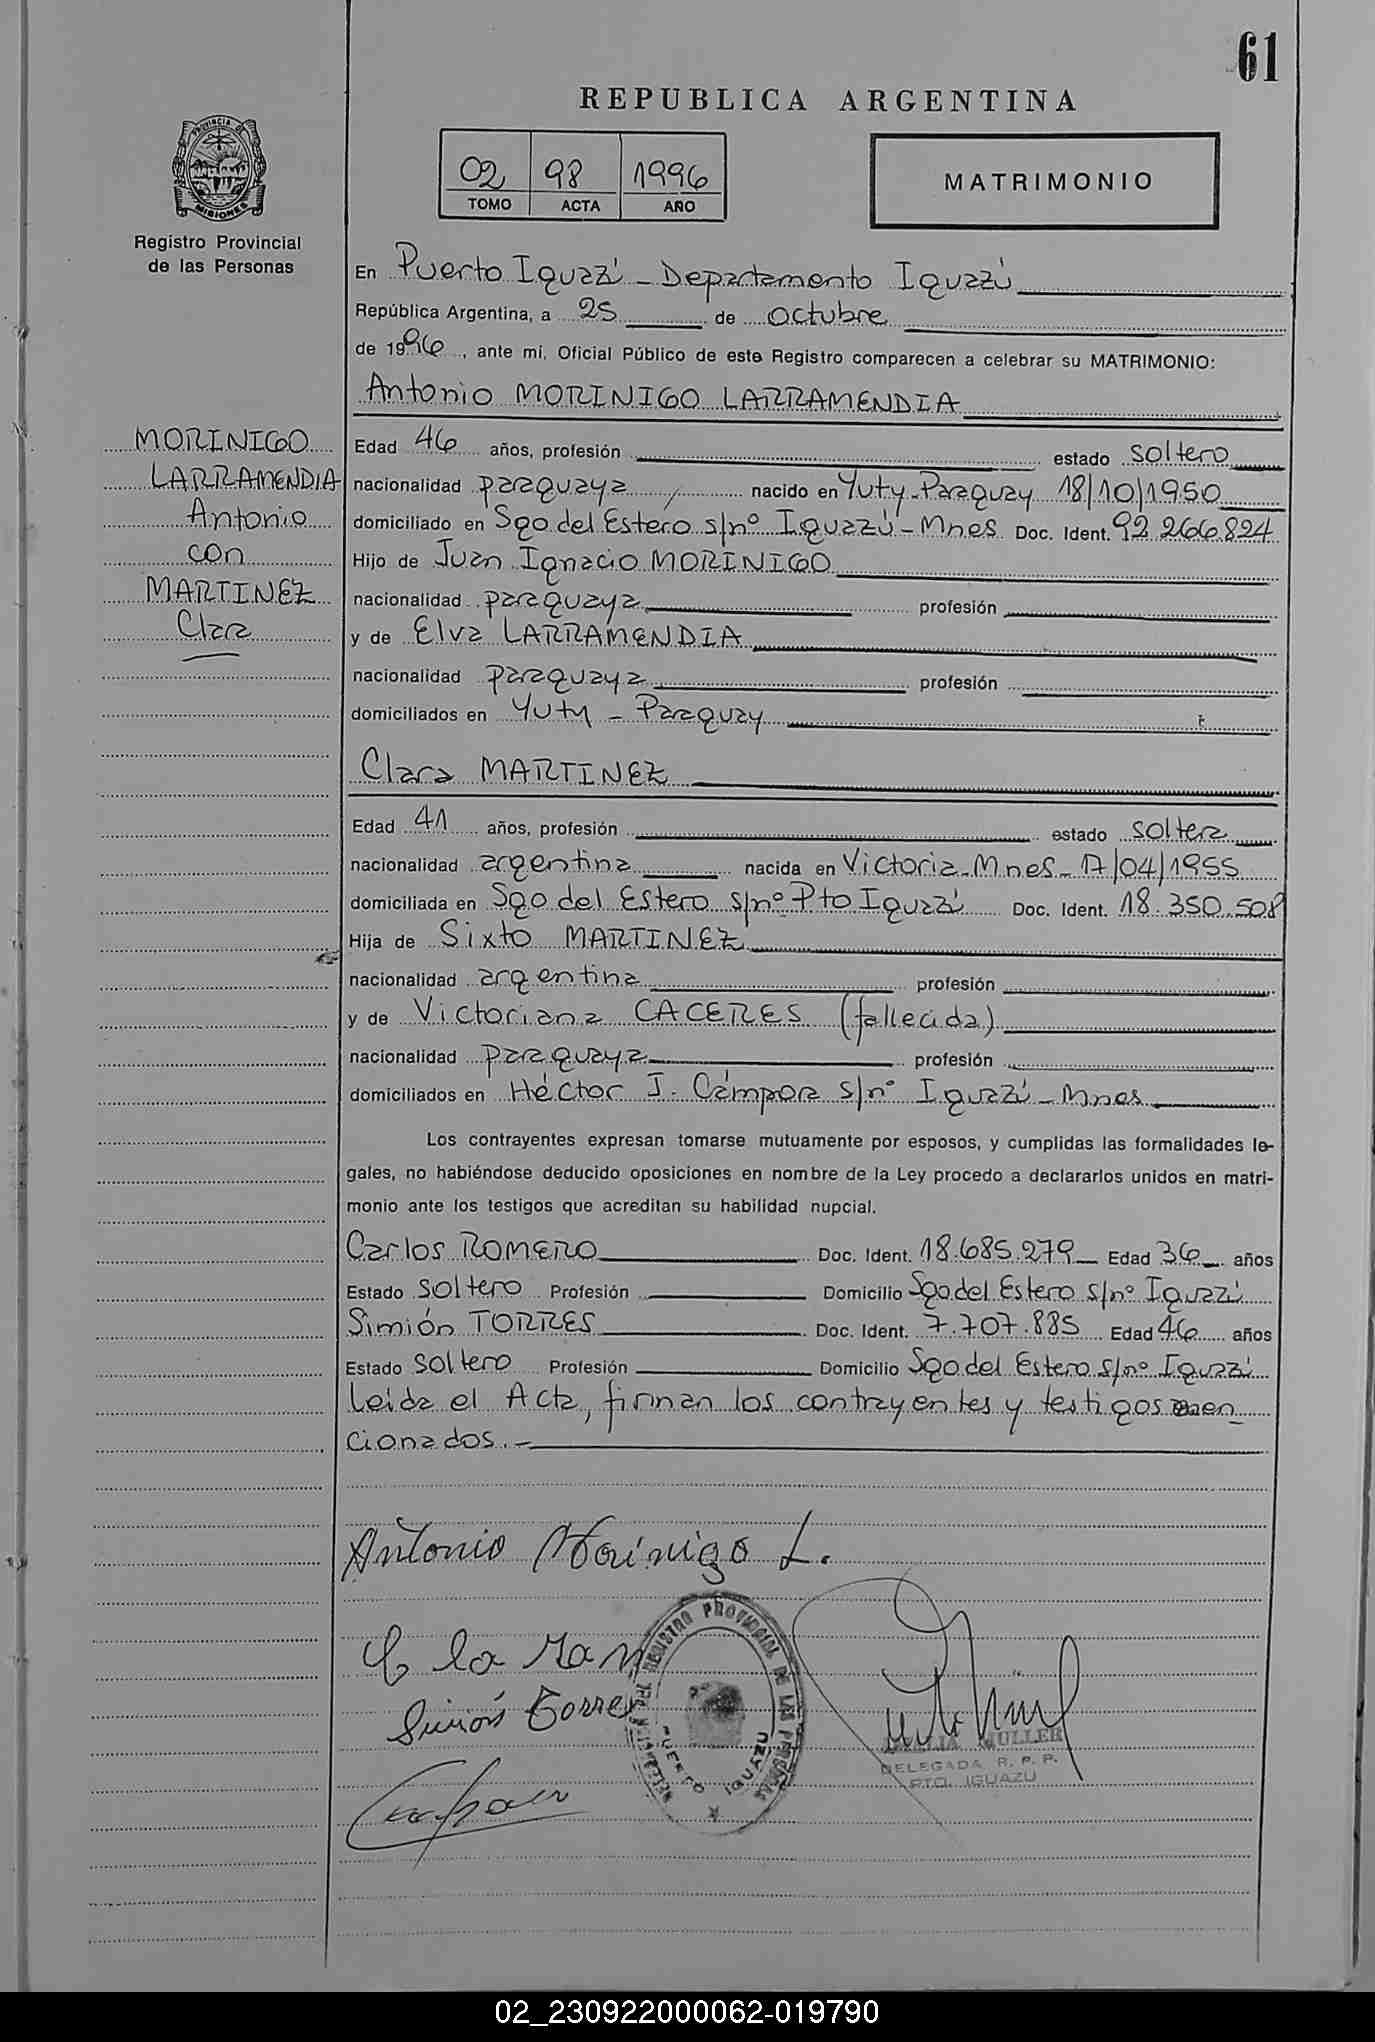 61
REPUBLICA ARGENTINA
PROVINCIA DE
MISIONES
Registro Provincial
de las Personas
02 98 1996
TOMO ACTA AÑO
MATRIMONIO
En Puerto Iguazú - Departamento Iguazú
República Argentina, a 25 de octubre
de 1996, ante mí, Oficial Público de este Registro comparecen a celebrar su MATRIMONIO:
Antonio MORINIGO LARRAMENDIA
MORINIGO
LARRAMENDIA
Antonio
con
MARTINEZ
Clara
Edad 46 años, profesión estado soltero
nacionalidad paraguaya nacido en Yuty-Paraguay 18/10/1950
domiciliado en Sgo del Estero s/nº Iguazú-Mnes Doc. Ident. 92.266.824
Hijo de Juan Ignacio MORINIGO
nacionalidad paraguaya profesión
y de Elva LARRAMENDIA
nacionalidad paraguaya profesión
domiciliados en Yuty - Paraguay
Clara MARTINEZ
Edad 41 años, profesión estado soltera
nacionalidad argentina nacida en Victoria-Mnes-17/04/1955
domiciliada en Sgo del Estero s/nº Pto Iguazú Doc. Ident. 18.350.508
Hija de Sixto MARTINEZ
nacionalidad argentina profesión
y de Victoriana CACERES (fallecida)
nacionalidad paraguaya profesión
domiciliados en Héctor J. Cámpora s/nº Iguazú-Mnes
Los contrayentes expresan tomarse mutuamente por esposos, y cumplidas las formalidades le-
gales, no habiéndose deducido oposiciones en nombre de la Ley procedo a declararlos unidos en matri-
monio ante los testigos que acreditan su habilidad nupcial.
Carlos ROMERO Doc. Ident. 18.685.279 Edad 36 años
Estado soltero Profesión Domicilio Sgo del Estero s/nº Iguazú
Simión TORRES Doc. Ident. 7.707.885 Edad 46 años
Estado soltero Profesión Domicilio Sgo del Estero s/nº Iguazú
Leida el Acta, firman los contrayentes y testigos men
cionados.-
Antonio Morinigo L.
C la ra Mar
Simión Torres
REGISTRO PROVINCIAL DE LAS PERSONAS
PUERTO IGUAZU
MULLER
DELEGADA R. P. P.
PTO. IGUAZU
02_230922000062-019790